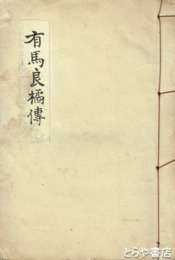 有馬良橘傳
© とらや書店